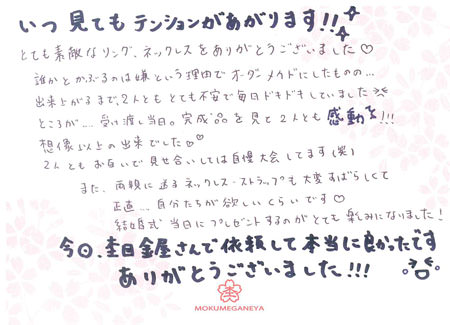 いつ見てもテンションがあがります!!
とても素敵なリング、ネックレスをありがとうございました♡
誰かとかぶるのは嫌という理由でオーダーメイドにしたものの…
出来上がるまで、2人ともとても不安で毎日ドキドキしていました
ところが…、受け渡し当日。完成品を見て2人とも感動を!!!
想像以上の出来でした♡
2人ともお互いで見せ合いしては自慢大会してます(笑)
また、両親に送るネックレス・ストラップも大変すばらしくて
正直…自分たちが欲しいくらいです♡
結婚式当日にプレゼントするのがとても楽しみになりました!
今回、杢目金屋さんで依頼して本当に良かったです
ありがとうございました!!!
MOKUMEGANEYA